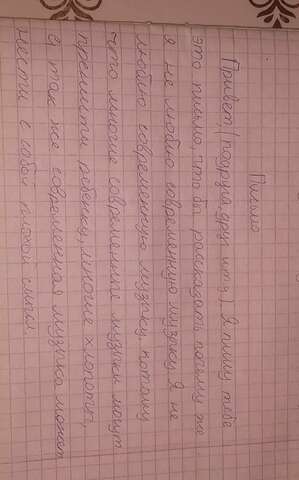 Письмо
Привет, (подруга, друг и тд) Я пишу тебе
это письмо, что бы рассказать почему же
я не люблю современную музыку. Я не
люблю современную музыку потому
что многие современные музыки могут
принести ребёнку, многие хлопоты,
а так же современная музыка может
нести с собой плохой смысл